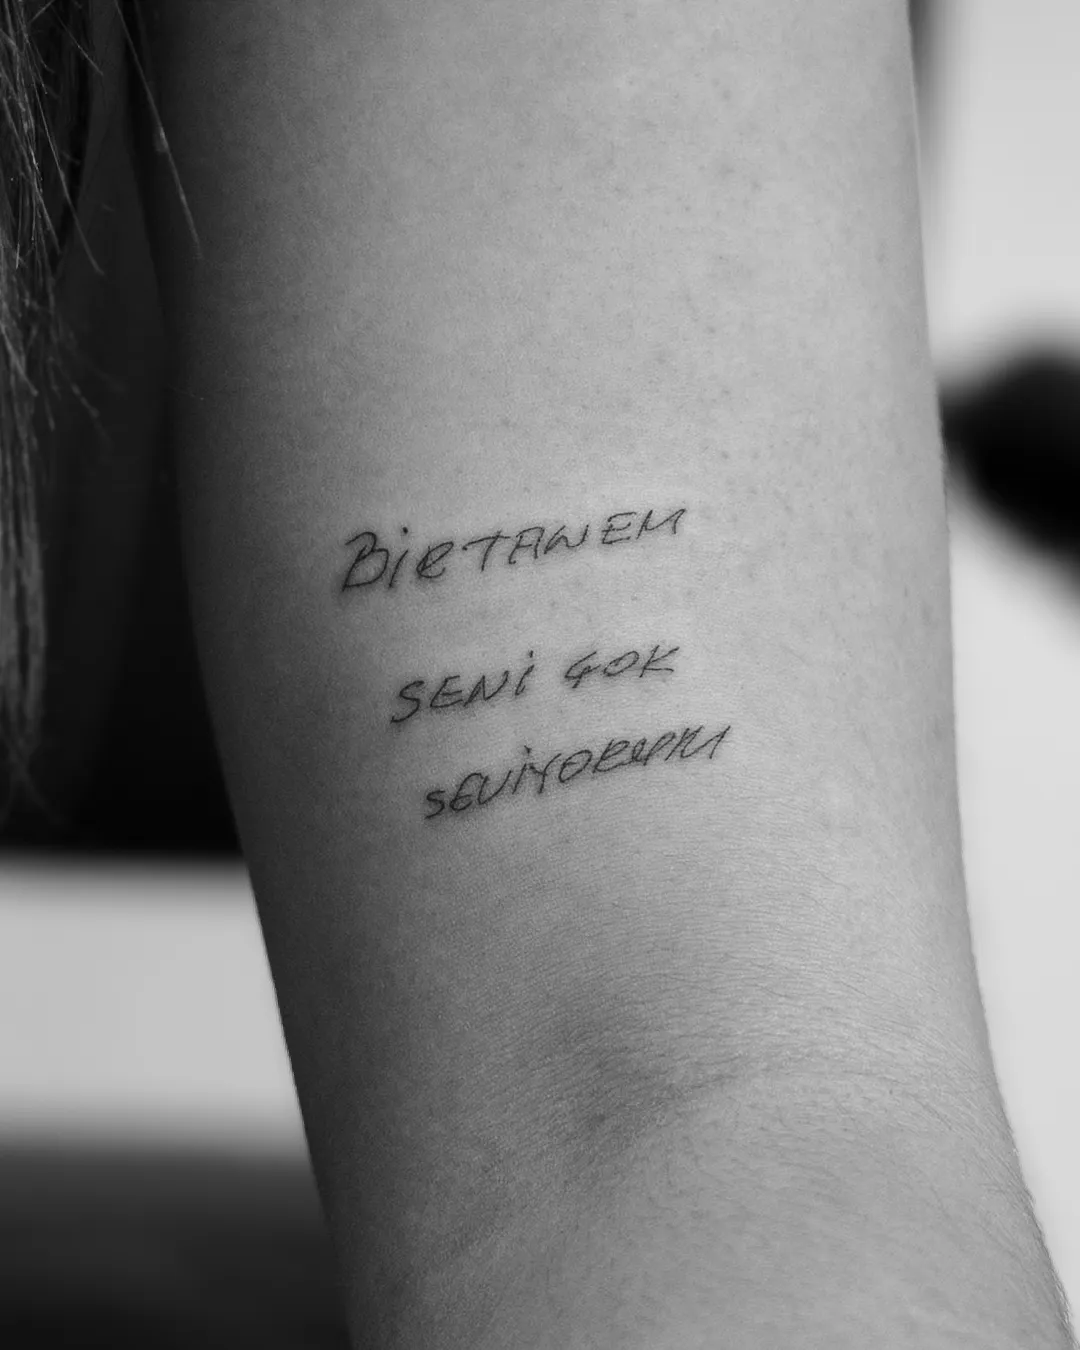 BİRTANEM
SENİ ÇOK
SEVİYORUM